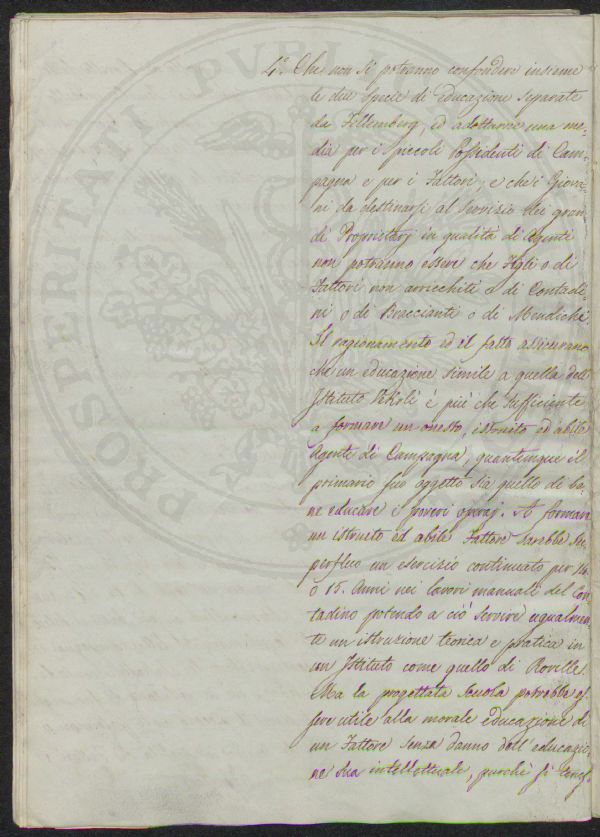 PROSPERITATI PVBLI
4.° Che non si potranno confondere insieme
le due specie di educazione separate
da Fellemberg, ed adottarne una me-
dia per i piccoli Possidenti di Cam-
pagna e per i Fattori, e che i Giova-
ni da destinarsi al servizio dei gran-
di Proprietarj in qualità di Agenti
non potranno essere che Figli o di
Fattori non arricchiti o di Contadi-
ni o di Braccianti o di Mendichi.
Il ragionamento ed il fatto assicurano
che un educazione simile a quella dell'
Istituto è più che sufficiente
a formare un onesto, istruito ed abile
Agente di Campagna, quantunque il
primario suo oggetto sia quello di be-
ne educare i poveri operaj. A formare
un istruito ed abile Fattore sarebbe su-
perfluo un esercizio continuato per 14
o 15. Anni nei lavori manuali del Con-
tadino potendo a ciò servire egualmen-
te un istruzione teorica e pratica in
un Istituto come quello di Roville.
Ma la progettata Scuola potrebbe es-
sere utile alla morale educazione di
un Fattore senza danno dell'educazio-
ne sua intellettuale, purché si tenes-